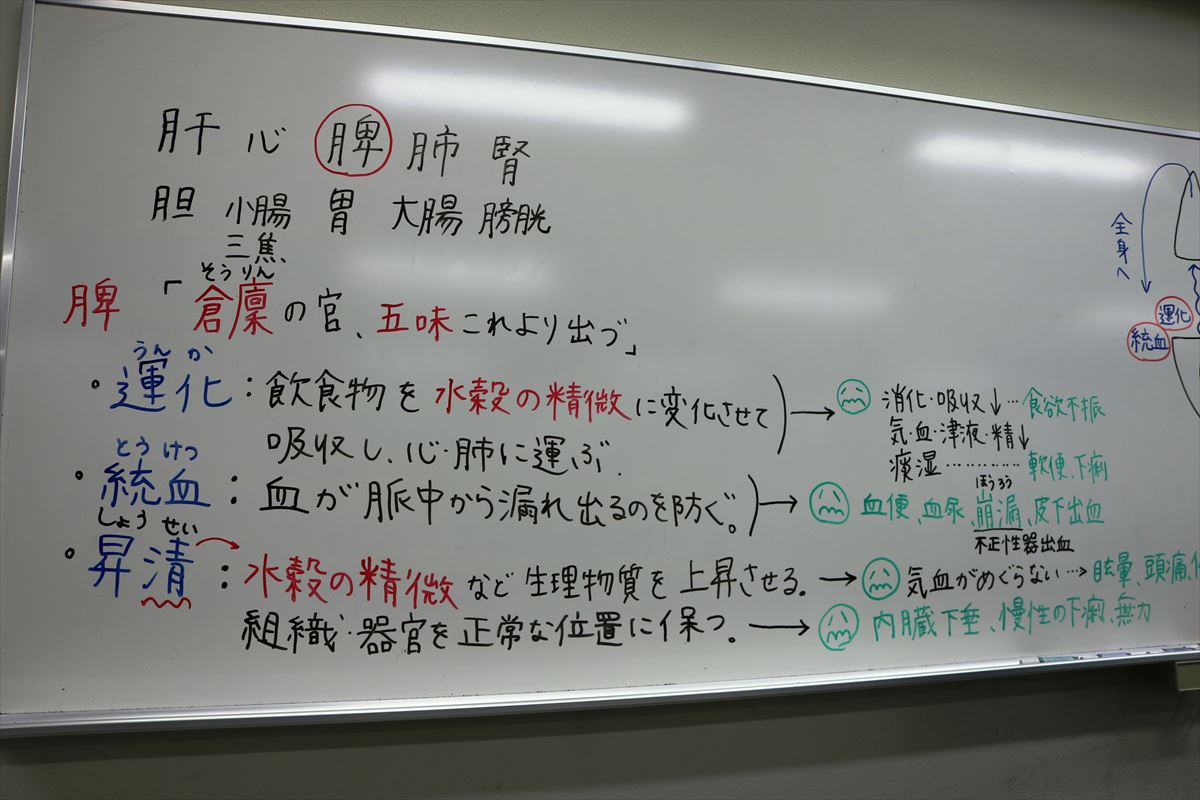 肝 心 脾 肺 腎
胆 小腸 胃 大腸 膀胱
三焦、
そうりん
脾 「倉廩の官、五味これより出づ」
うん か
・運化：飲食物を水穀の精微に変化させて
吸収し、心・肺に運ぶ.
→ 消化・吸収↓…食欲不振
気・血・津液・精↓
痰湿…………軟便、下痢
とう けつ
・統血：血が脈中から漏れ出るのを防ぐ。
ほうろう
→ 血便、血尿、崩漏、皮下出血
不正性器出血
しょう せい
・昇清：水穀の精微など生理物質を上昇させる.
→ 気血がめぐらない…→眩暈、頭痛、
組織・器官を正常な位置に保つ.
→ 内臓下垂、慢性の下痢、無力
全身へ
運化
統血